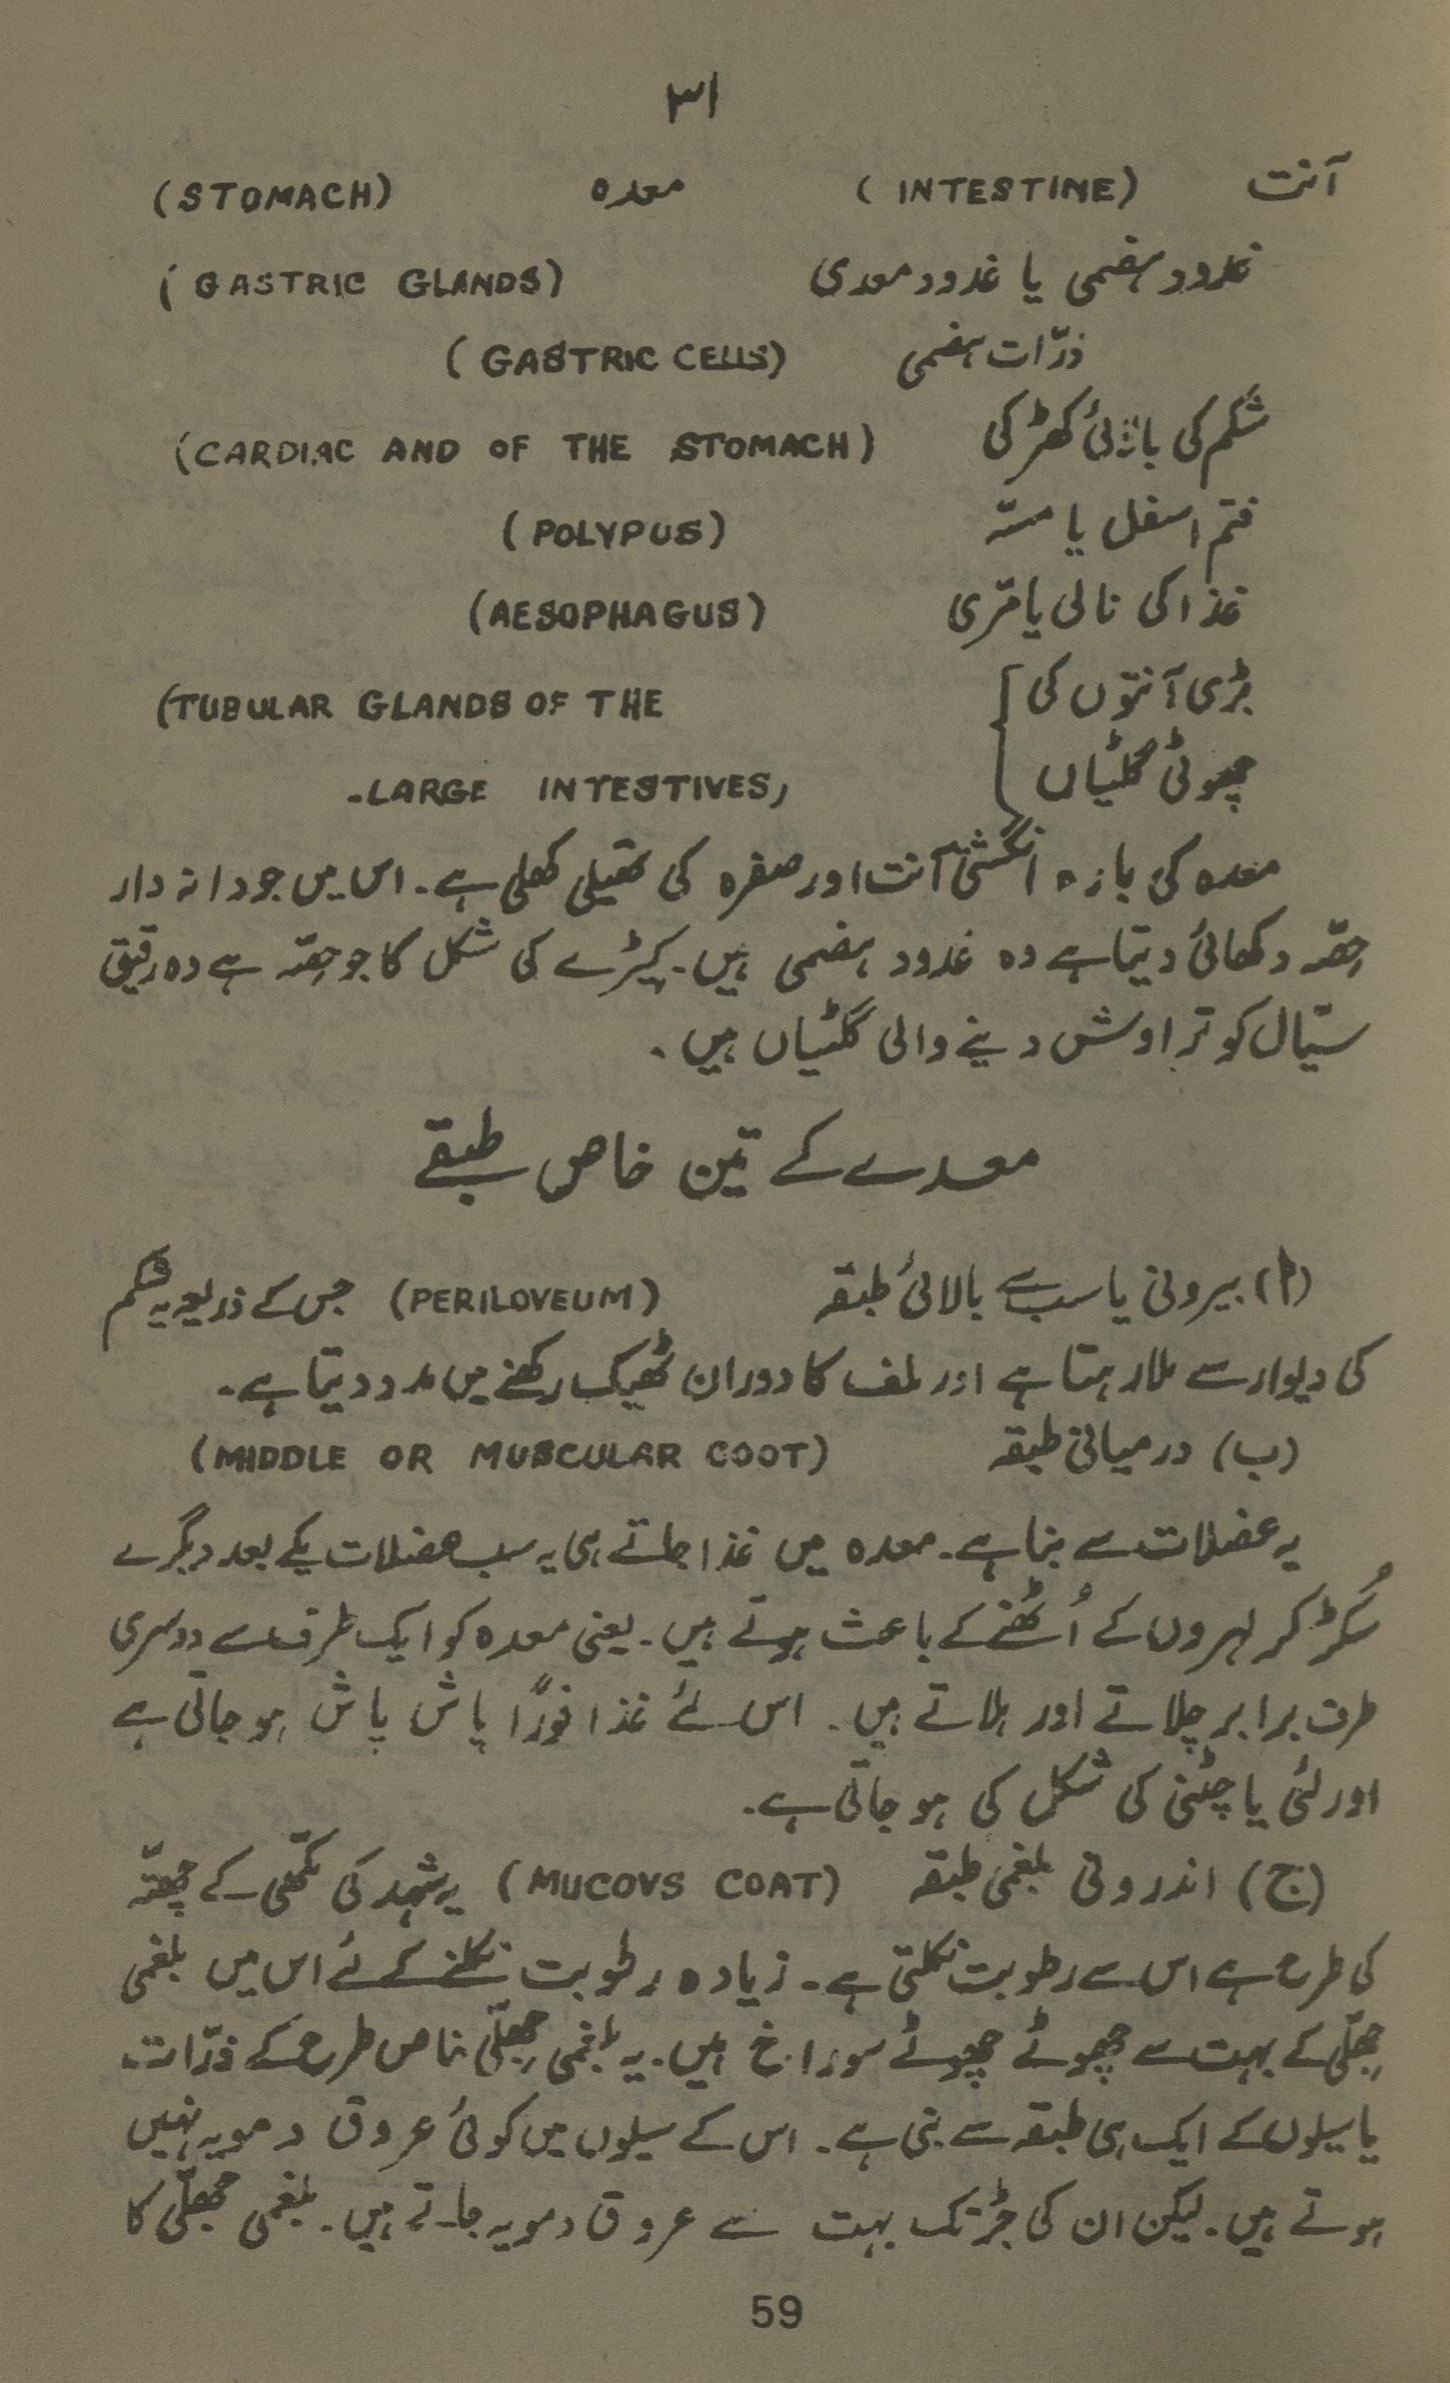 ۳۱
آنت (INTESTINE) معدہ (STOMACH)
غدود ہضمی یا غدود معدی (GASTRIC GLANDS)
ذرّات ہضمی (GASTRIC CELLS)
شکم کی کھڑکی (CARDIAC AND OF THE STOMACH)
فتم اسفل یا مسّہ (POLYPUS)
غذا کی نالی یا مّری (AESOPHAGUS)
بڑی آنتوں کی (TUBULAR GLANDS OF THE
چھوٹی گلٹیاں LARGE INTESTIVES,
معدہ کی بازہ انگشتی آنت اور صفرہ کی تھیلی کھلی ہے۔ اس میں جو دانہ دار
حِصّہ دکھائی دیتا ہے وہ غدود ہضمی ہیں۔ کیڑے کی شکل کا جو حِصّہ ہے وہ رقیق
سیّال کو تراوش دینے والی گلٹیاں ہیں۔
معدے کے تین خاص طبقے
(ا) بیرونی یا سب سے بالائی طبقہ (PERILOVEUM) جس کے ذریعہ یہ شکم
کی دیوار سے ملا رہتا ہے اور لمف کا دوران ٹھیک رکھنے میں مدد دیتا ہے۔
(ب) درمیانی طبقہ (MIDDLE OR MUSCULAR COOT)
یہ عضلات سے بنا ہے۔ معدہ میں غذا جاتے ہی یہ سب عضلات یکے بعد دیگرے
سُکڑ کر لہروں کے اُٹھنے کے باعث ہوتے ہیں۔ یعنی معدہ کو ایک طرف سے دوسری
طرف برابر چلاتے اور ہلاتے ہیں۔ اس لئے غذا فورًا پاش پاش ہو جاتی ہے
اور لئی یا چٹنی کی شکل کی ہو جاتی ہے۔
(ج) اندرونی بلغمی طبقہ (MUCOVS COAT) یہ شہد کی مکّھی کے چھتّہ
کی طرح ہے اس سے رطوبت نکلتی ہے۔ زیادہ رطوبت نکلنے کے لئے اس میں بلغمی
جھلّی کے بہت سے چھوٹے چھوٹے سوراخ ہیں۔ یہ بلغمی جھلّی خاص طرح کے ذرّات
یا سیلوں کے ایک ہی طبقہ سے بنی ہے۔ اس کے سیلوں میں کوئی عروق دمویہ نہیں
ہوتے ہیں۔ لیکن ان کی جڑ تک بہت سے عروق دمویہ جاتے ہیں۔ بلغمی جھلّی کا
59